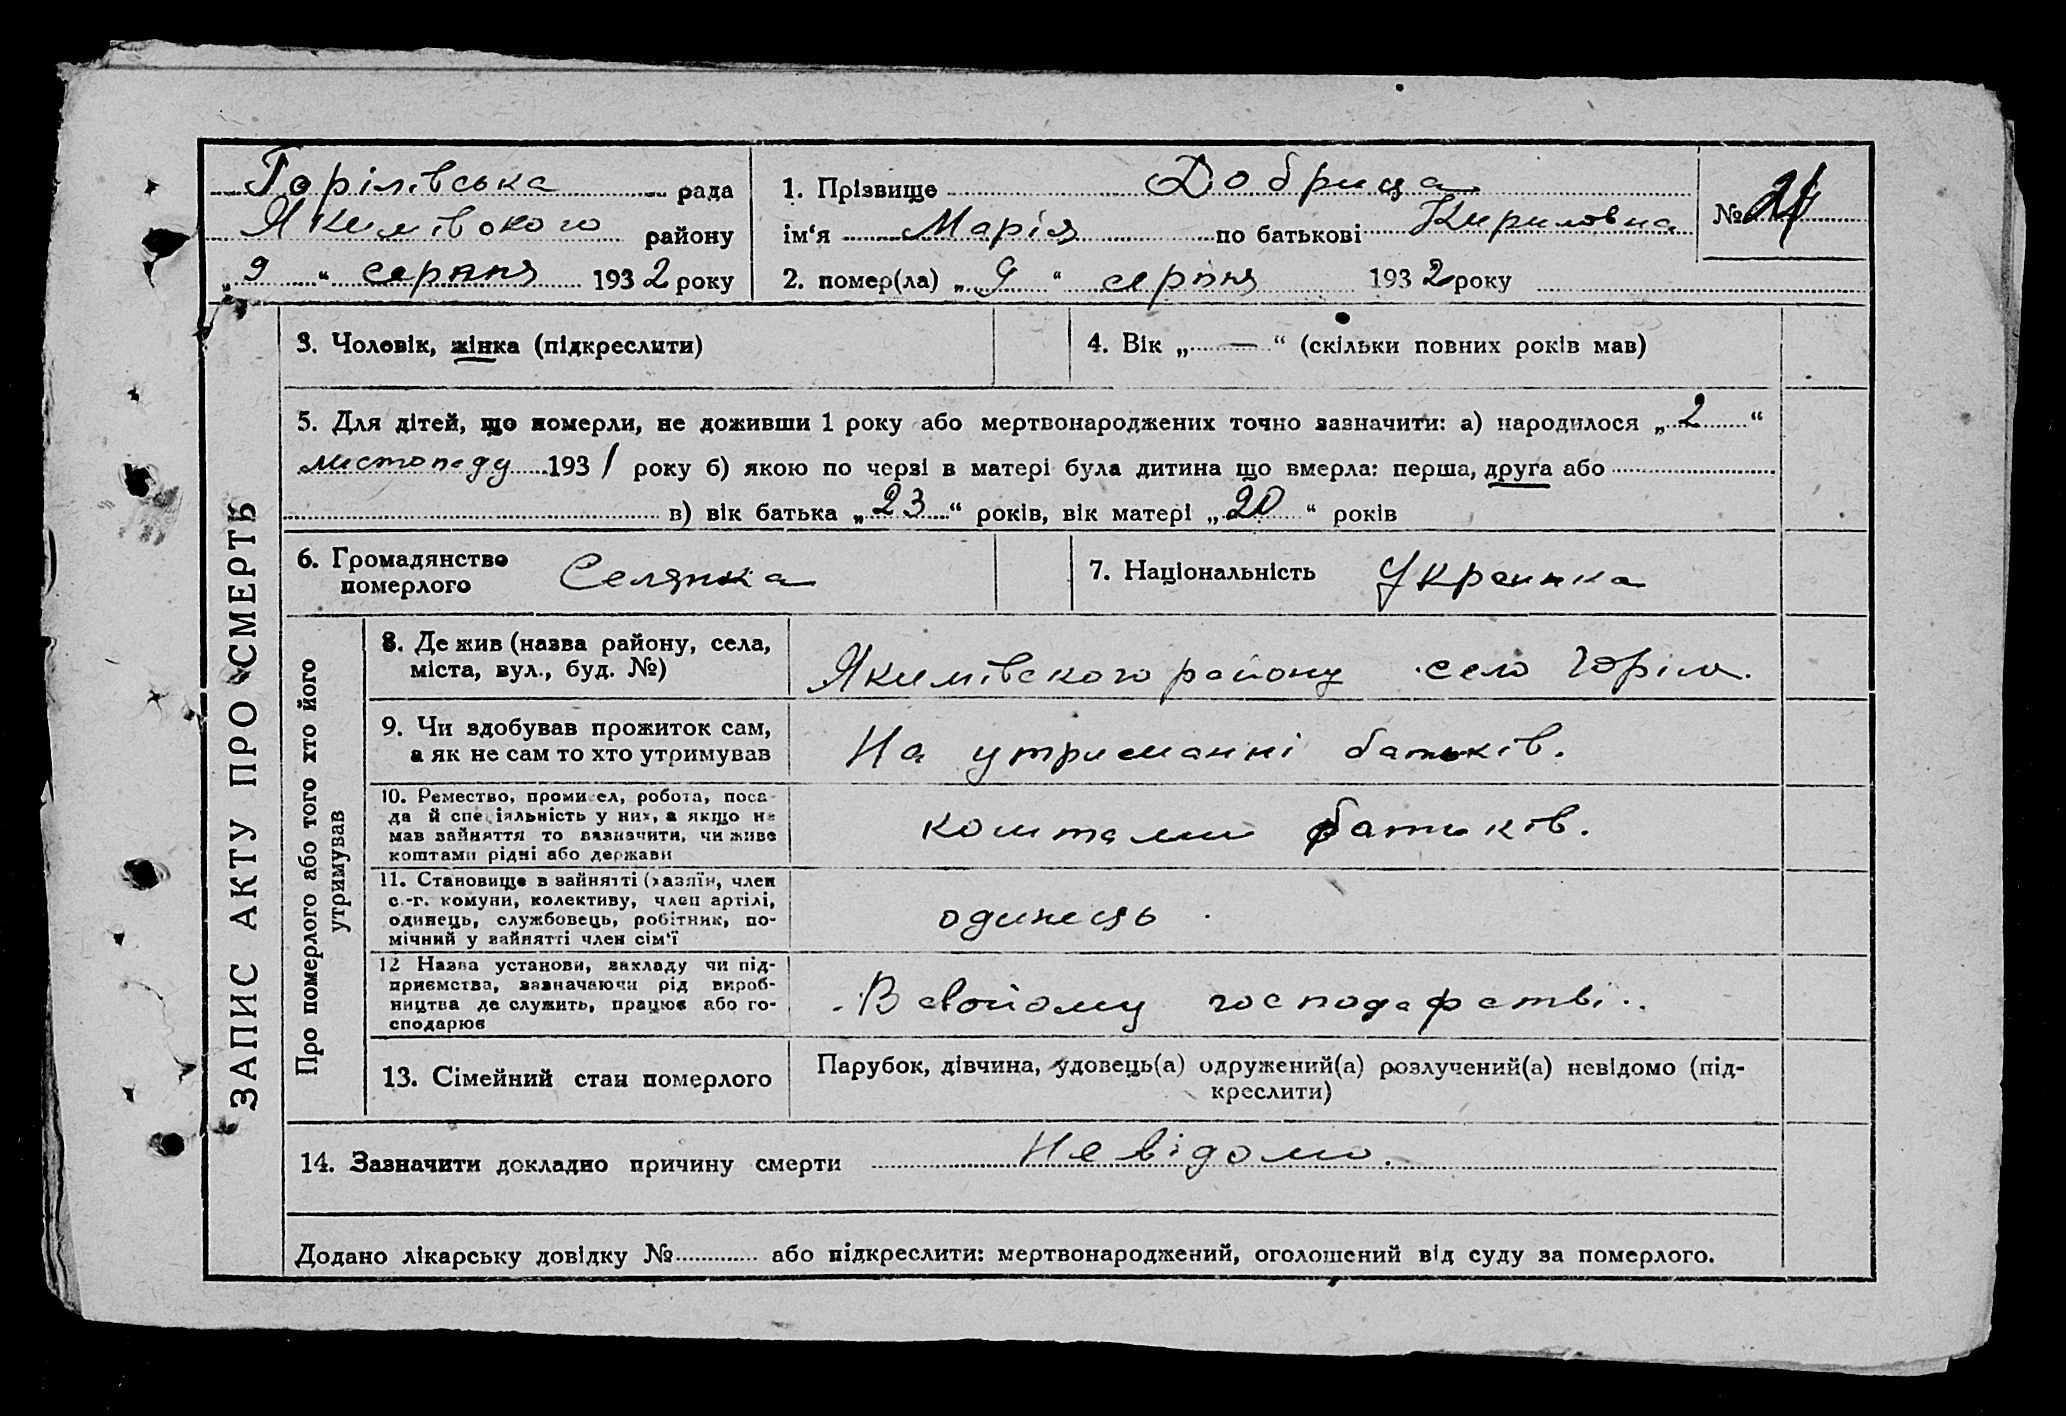 Горілівська рада
Якимівского району
„9“ серпня 1932 року
1. Прізвище Добрица
ім‘я Марія по батькові Кириловна
2. помер(ла) „9“ серпня 1932 року
№ 24
ЗАПИС АКТУ ПРО СМЕРТЬ
3. Чоловік, жінка (підкреслити)
4. Вік „—“ (скільки повних років мав)
5. Для дітей, що померли, не доживши 1 року або мертвонароджених точно зазначити: а) народилося „2“
листопаду 1931 року б) якою по черзі в матері була дитина що вмерла: перша, друга або
в) вік батька „23“ років, вік матері „20“ років
6. Громадянство
померлого Селянка
7. Національність Украинка
Про померлого або того хто його
утримував
8. Де жив (назва району, села,
міста, вул., буд. №)
Якимівского району село Горіл.
9. Чи здобував прожиток сам,
а як не сам то хто утримував
На утриманні батьків.
10. Ремество, промисел, робота, поса-
да й спеціяльність у них, а якщо не
мав зайняття то вазначити, чи живе
коштами рідні або держави
коштами батьків.
11. Становище в зайнятті (хазяїн, член
с.-г. комуни, колективу, член артілі,
одинець, службовець, робітник, по-
мічний у зайнятті член сім‘ї
одинець
12 Назва установи, закладу чи під-
приємства, зазначаючи рід вироб-
ництва де служить, працює або го-
сподарює
В свойому господарстві.
13. Сімейний стан померлого
Парубок, дівчина, удовець(а) одружений(а) розлучений(а) невідомо (під-
креслити)
14. Зазначити докладно причину смерти Невідомо.
Додано лікарську довідку № або підкреслити: мертвонароджений, оголошений від суду за померлого.